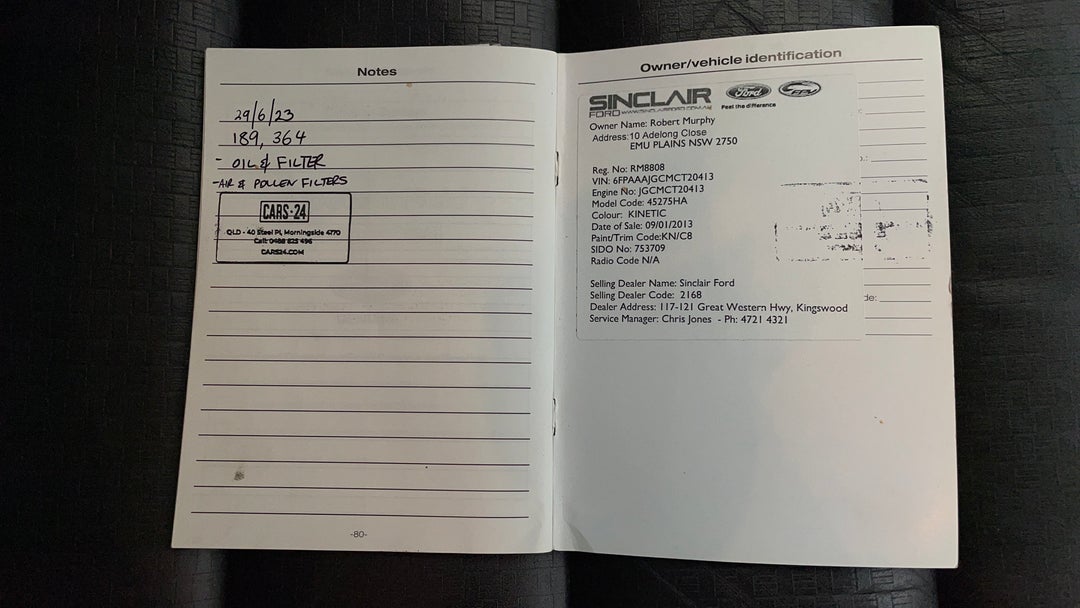 Notes
29/6/23
189, 364
- OIL & FILTER
-AIR & POLLEN FILTERS
CARS-24
QLD - 40 Steel Pl, Morningside 4170
Call: 0488 825 496
CARS24.COM
-80-
Owner/vehicle identification
SINCLAIR
FORD WWW.SINCLAIRFORD.COM.AU
Ford
Feel the difference
FPV
Owner Name: Robert Murphy
Address: 10 Adelong Close
EMU PLAINS NSW 2750
Reg. No: RM8808
VIN: 6FPAAAJGCMCT20413
Engine No: JGCMCT20413
Model Code: 45275HA
Colour: KINETIC
Date of Sale: 09/01/2013
Paint/Trim Code:KN/C8
SIDO No: 753709
Radio Code N/A
Selling Dealer Name: Sinclair Ford
Selling Dealer Code: 2168
Dealer Address: 117-121 Great Western Hwy, Kingswood
Service Manager: Chris Jones - Ph: 4721 4321